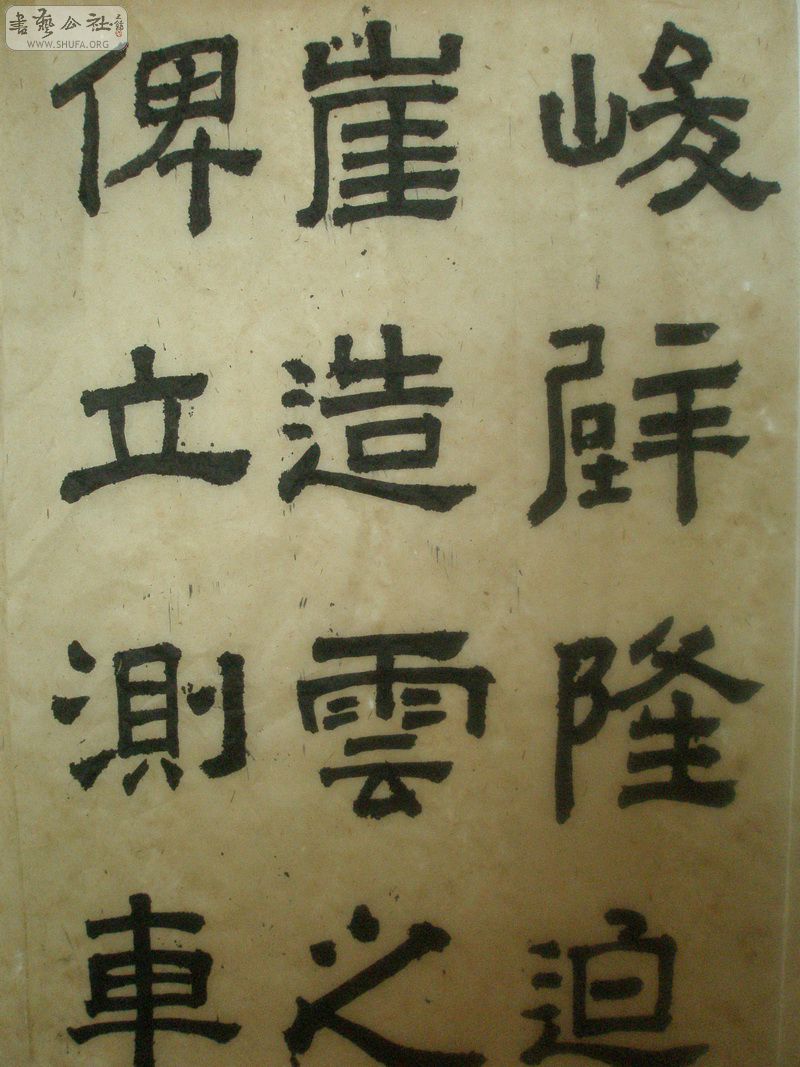 書藝公社
WWW.SHUFA.ORG
峻壁隆迫
崖造雲之
俾立測車